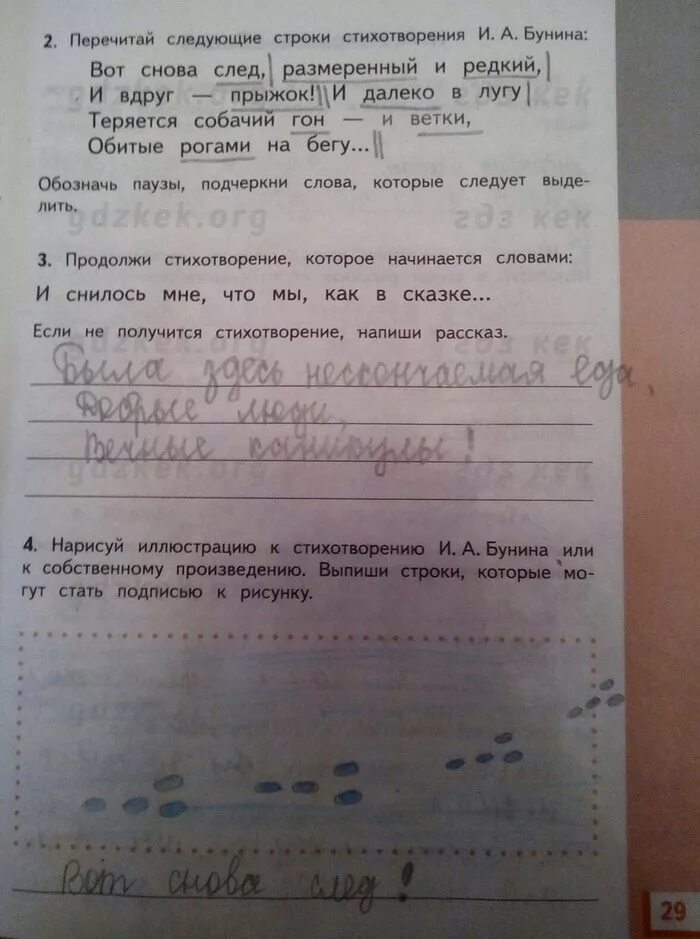 2. Перечитай следующие строки стихотворения И. А. Бунина:
Вот снова след, размеренный и редкий,
И вдруг — прыжок! И далеко в лугу
Теряется собачий гон — и ветки,
Обитые рогами на бегу...
Обозначь паузы, подчеркни слова, которые следует выде-
лить.
gdzkek.org гдз кек
3. Продолжи стихотворение, которое начинается словами:
И снилось мне, что мы, как в сказке...
Если не получится стихотворение, напиши рассказ.
Была здесь нескончаемая еда,
Добрые люди,
Вечные каникулы!
gdzkek.org гдз кек
4. Нарисуй иллюстрацию к стихотворению И. А. Бунина или
к собственному произведению. Выпиши строки, которые мо-
гут стать подписью к рисунку.
Вот снова след!
29